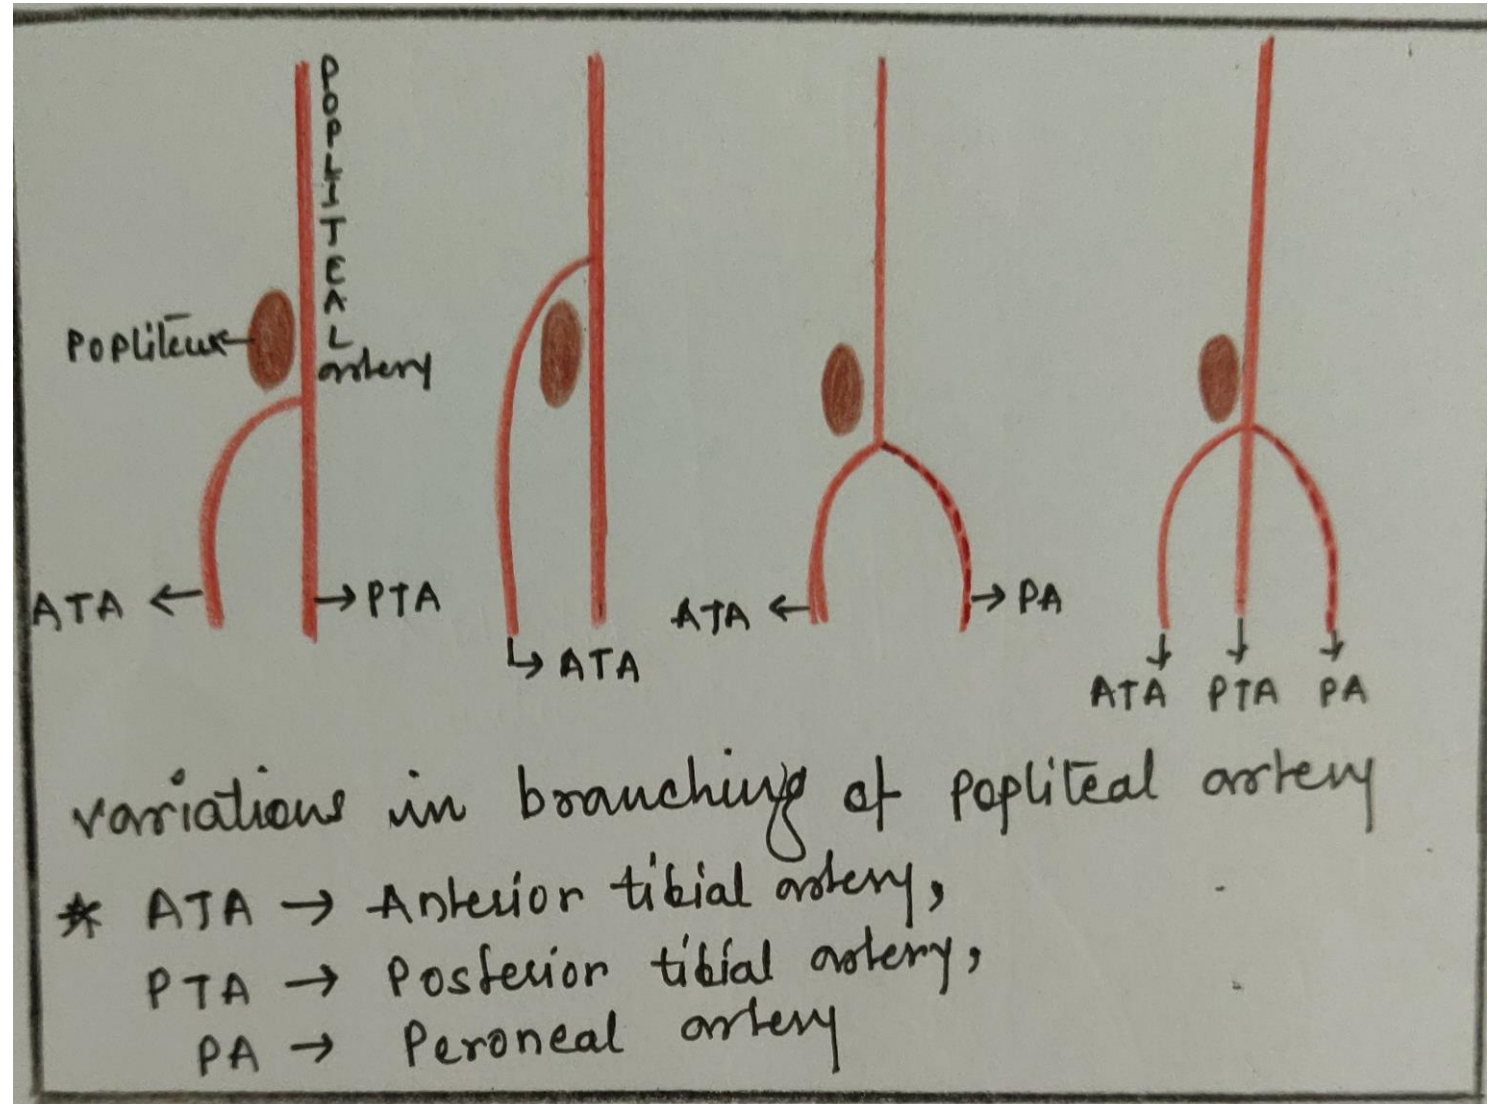 POPLITEAL
artery
Popliteus
ATA
PTA
ATA
ATA
PA
ATA PTA PA
variations in branching of popliteal artery
* ATA → Anterior tibial artery,
PTA → Posterior tibial artery,
PA → Peroneal artery